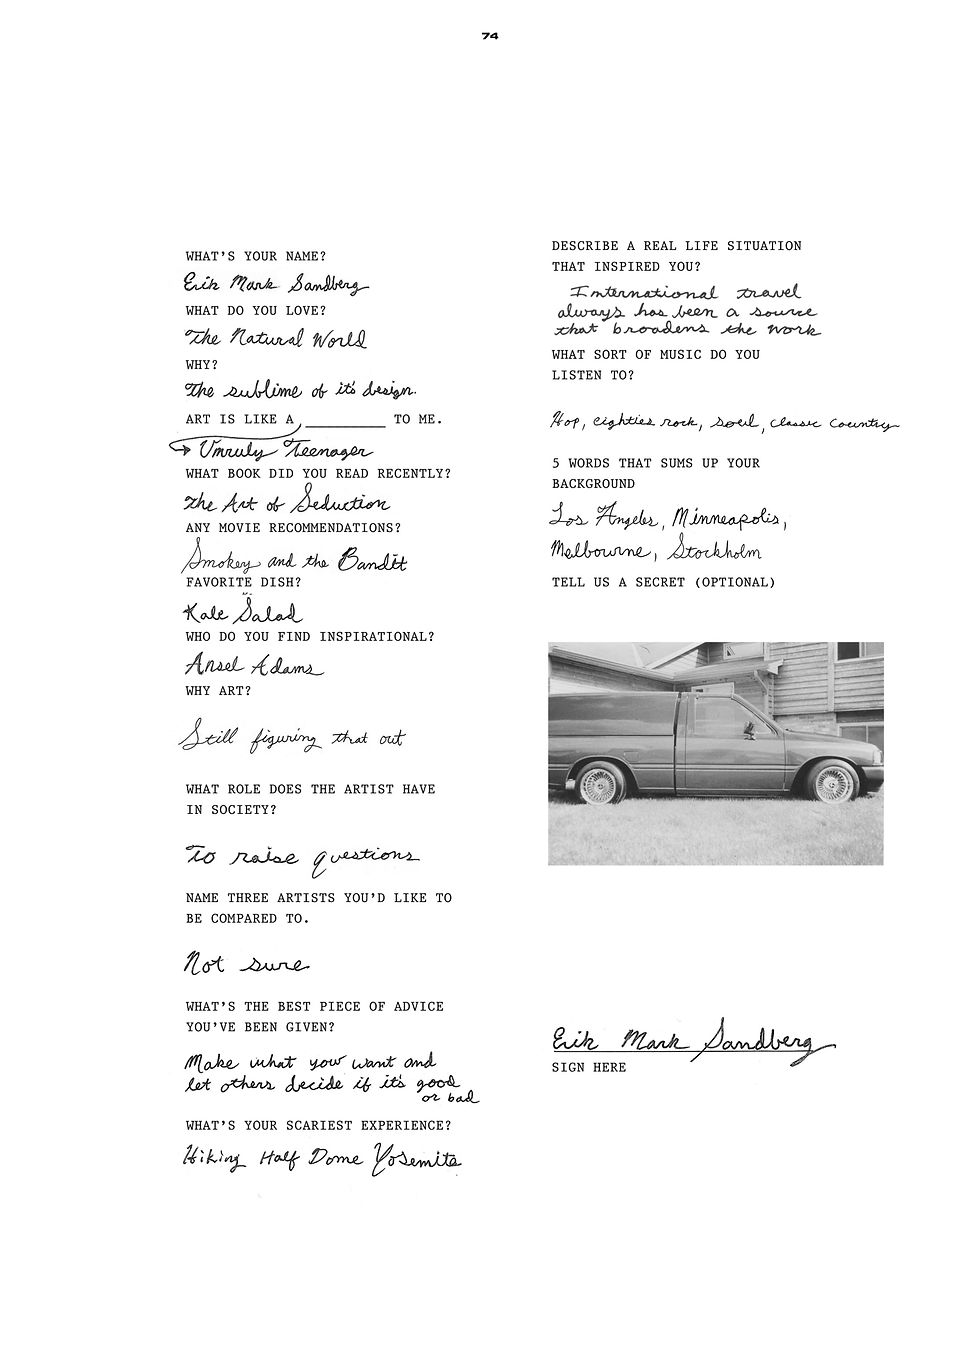 74
WHAT'S YOUR NAME?
Erik Mark Sandberg
WHAT DO YOU LOVE?
The Natural World
WHY?
The sublime of it's design.
ART IS LIKE A __________ TO ME.
Unruly Teenager
WHAT BOOK DID YOU READ RECENTLY?
The Art of Seduction
ANY MOVIE RECOMMENDATIONS?
Smokey and the Bandit
FAVORITE DISH?
Kale Salad
WHO DO YOU FIND INSPIRATIONAL?
Ansel Adams
WHY ART?
Still figuring that out
WHAT ROLE DOES THE ARTIST HAVE
IN SOCIETY?
To raise questions
NAME THREE ARTISTS YOU'D LIKE TO
BE COMPARED TO.
Not sure
WHAT'S THE BEST PIECE OF ADVICE
YOU'VE BEEN GIVEN?
Make what you want and
let others decide if it's good
or bad
WHAT'S YOUR SCARIEST EXPERIENCE?
Hiking Half Dome Yosemite
DESCRIBE A REAL LIFE SITUATION
THAT INSPIRED YOU?
International travel
always has been a source
that broadens the work
WHAT SORT OF MUSIC DO YOU
LISTEN TO?
Hop, eighties rock, soul, classic country
5 WORDS THAT SUMS UP YOUR
BACKGROUND
Los Angeles, Minneapolis,
Melbourne, Stockholm
TELL US A SECRET (OPTIONAL)
Erik Mark Sandberg
SIGN HERE